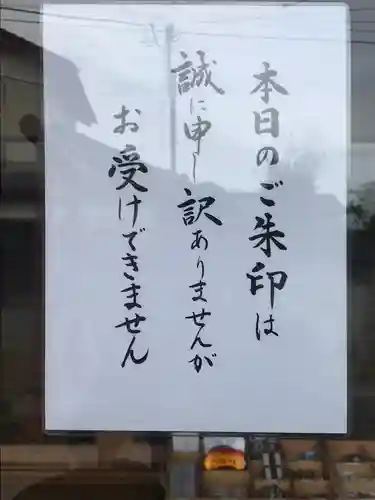 本日のご朱印は
誠に申し訳ありませんが
お受けできません